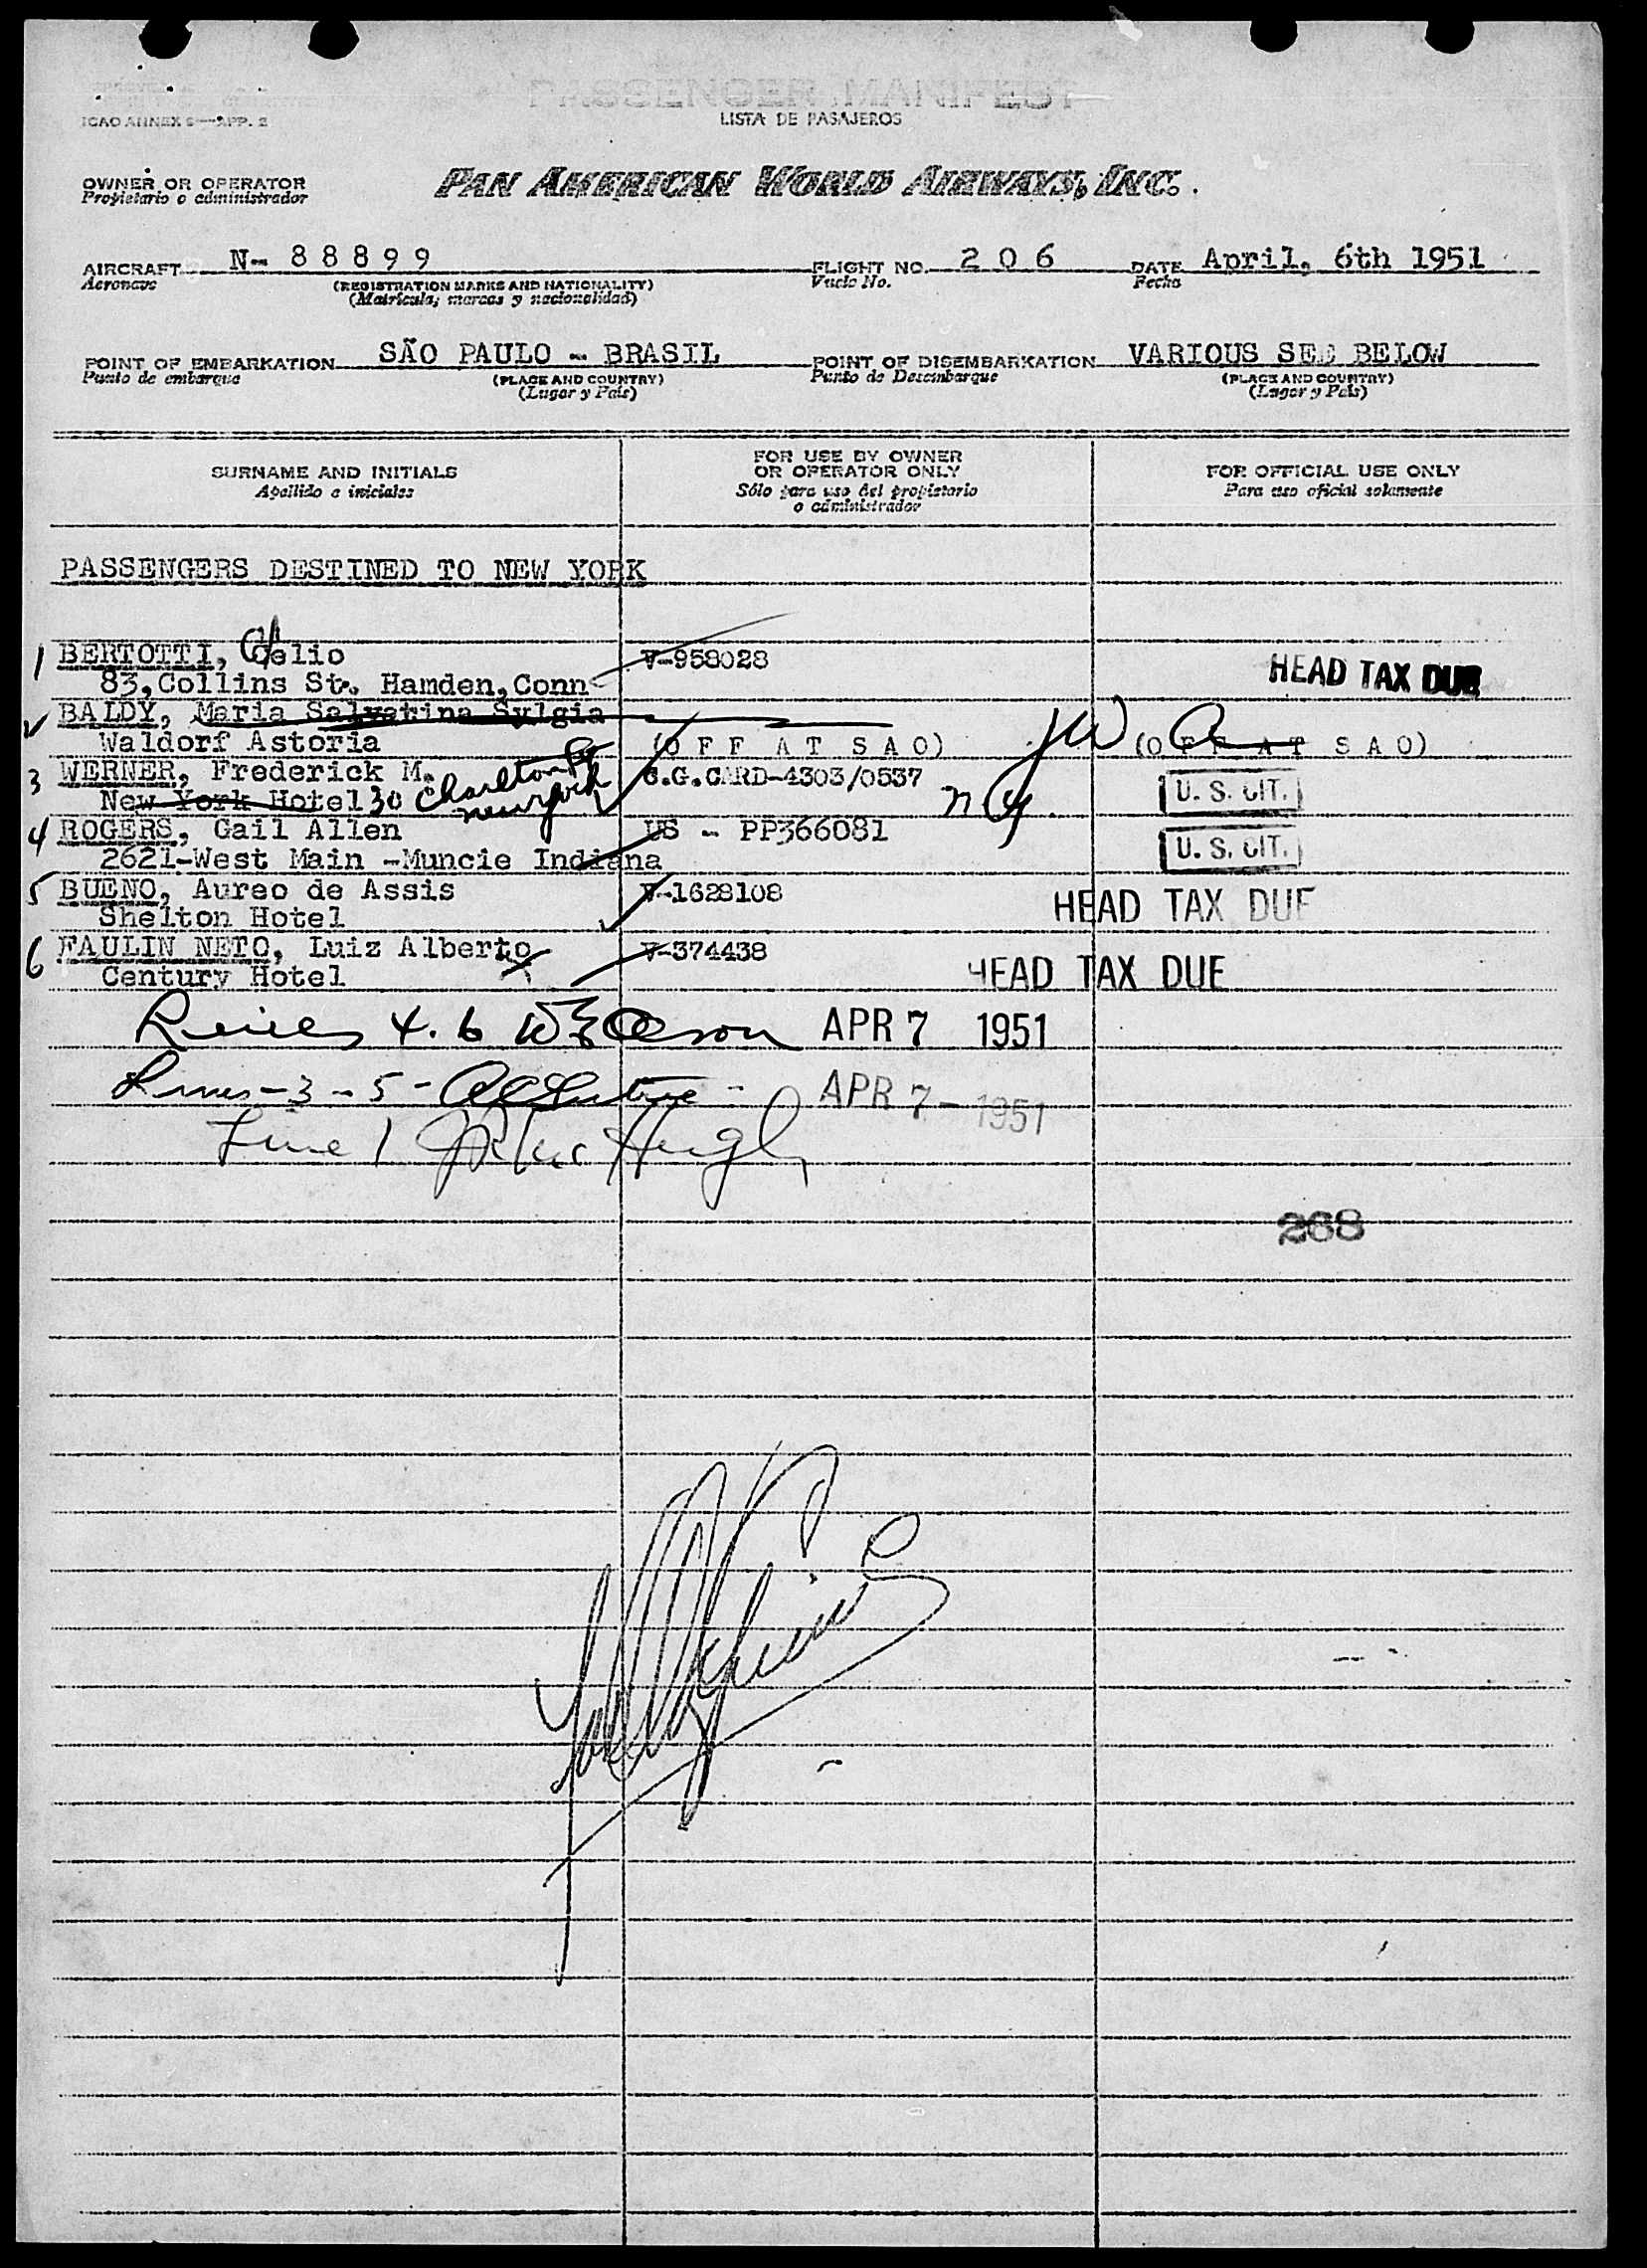 PASSENGER MANIFEST
ICAO ANNEX 9—APP. 2
LISTA DE PASAJEROS
OWNER OR OPERATOR
Propietario o administrador
PAN AMERICAN WORLD AIRWAYS, INC.
AIRCRAFT N- 88899 FLIGHT NO. 206 DATE April, 6th 1951
Aeronave (REGISTRATION MARKS AND NATIONALITY) Vuelo No. Fecha
(Matrícula, marcas y nacionalidad)
POINT OF EMBARKATION SÃO PAULO - BRASIL POINT OF DISEMBARKATION VARIOUS SEE BELOW
Punto de embarque (PLACE AND COUNTRY) Punto de Desembarque (PLACE AND COUNTRY)
(Lugar y País) (Lugar y País)
SURNAME AND INITIALS
Apellido e iniciales
FOR USE BY OWNER
OR OPERATOR ONLY
Sólo para uso del propietario
o administrador
FOR OFFICIAL USE ONLY
Para uso oficial solamente
PASSENGERS DESTINED TO NEW YORK
1 BERTOTTI, Celio V-958028
83, Collins St. Hamden, Conn HEAD TAX DUE
2 BALDY, Maria Salvatina Sylgia
Waldorf Astoria (OFF AT SAO) (OFF AT SAO)
3 WERNER, Frederick M. C.G.CARD-4303/0537
New York Hotel 30 Charlton St New York U. S. CIT.
4 ROGERS, Gail Allen US - PP366081
2621-West Main -Muncie Indiana U. S. CIT.
5 BUENO, Aureo de Assis V-1628108
Shelton Hotel HEAD TAX DUE
6 FAULIN NETO, Luiz Alberto V-374438
Century Hotel HEAD TAX DUE
4. 6 APR 7 1951
Lines-3-5- APR 7-1951
Line 1
268